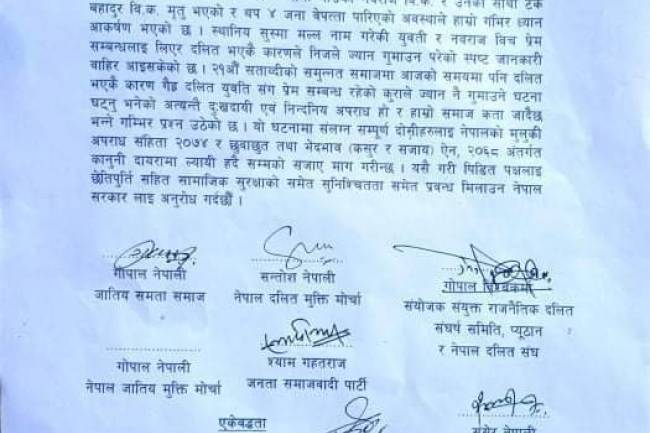 बहादुर वि.क. मृतु भएको र थप ४ जना बेपत्ता पारिएको अवस्थाले हाम्रो गंभिर ध्यान
आकर्षण भएको छ । स्थानिय सुस्मा मल्ल नाम गरेकी युवती र नवराज विच प्रेम
सम्बन्धलाइ लिएर दलित भएकै कारणले निजले ज्यान गुमाउन परेको स्पष्ट जानकारी
वाहिर आइसकेको छ । २१औं सताब्दीको समुन्नत समाजमा आजको समयमा पनि दलित
भएकै कारण गैह्र दलित युवति संग प्रेम सम्बन्ध रहेको कुराले ज्यान नै गुमाउने घटना
घट्नु भनेको अत्यन्तै दुःखदायी एवं निन्दनिय अपराध हो र हाम्रो समाज कता जादैछ
भन्ने गम्भिर प्रश्न उठेको छ । यो घटनामा संलग्न सम्पूर्ण दोशीहरुलाइ नेपालको मुलुकी
अपराध संहिता २०७४ र छुवाछुत तथा भेदभाव (कसुर र सजाय) ऐन, २०६८ अंतर्गत
कानुनी दायरामा ल्यायी हदै सम्मको सजाए माग गरीन्छ । यसै गरी पिडित पक्षलाइ
छेतिपुर्ति सहित सामाजिक सुरक्षाको समेत सुनिश्चितता समेत प्रवन्ध मिलाउन नेपाल
सरकार लाइ अनुरोध गर्दछौं ।
गोपाल नेपाली
जातिय समता समाज
सन्तोश नेपाली
नेपाल दलित मुक्ति मोर्चा
गोपाल विश्वकर्मा
संयोजक संयुक्त राजनैतिक दलित
संघर्ष समिति, प्यूठान
र नेपाल दलित संघ
गोपाल नेपाली
नेपाल जातिय मुक्ति मोर्चा
श्याम गहतराज
जनता समाजवादी पार्टी
एकेबद्धता